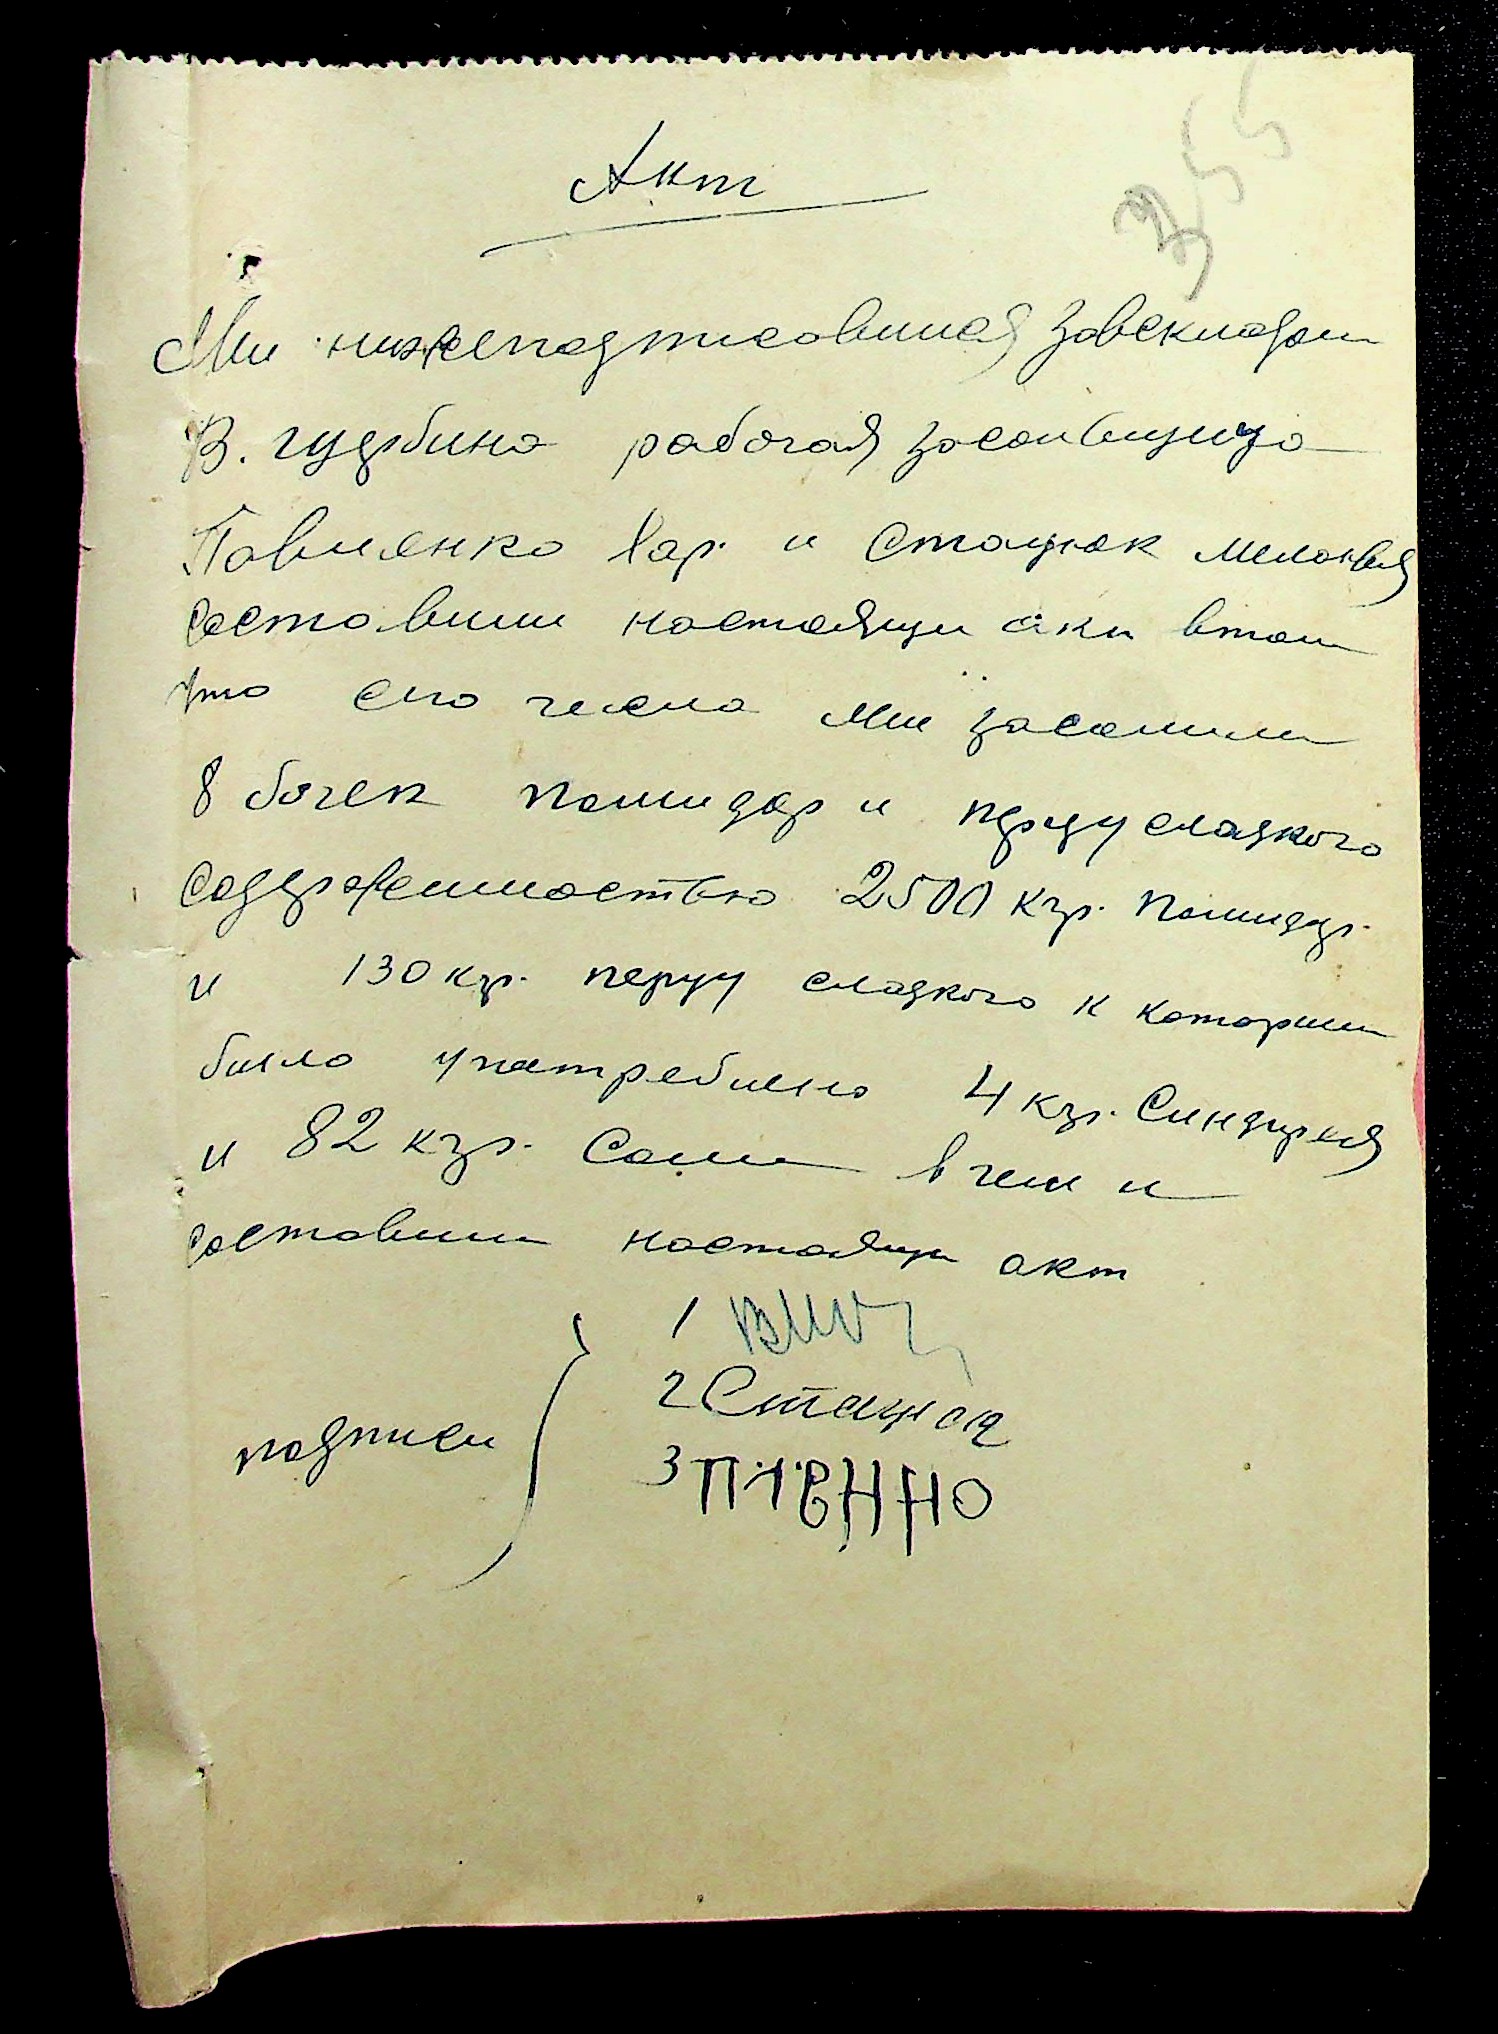 355
Акт
Ми нижеподписовшися завскладом
В. гудбина рабочая засольщица
Павленко Вар. и Стацюк
составили настоящи акт втом
что сго числа ми засолили
8 бочек помидор и перцу сладкого
содержимостью 2500 кгр. помидор.
и 130 кгр. перцу сладкого к которим
било употреблено 4 кгр.
и 82 кгр. Соли в чем и
составили настоящи акт
подписи
1
2 Стацюк
3